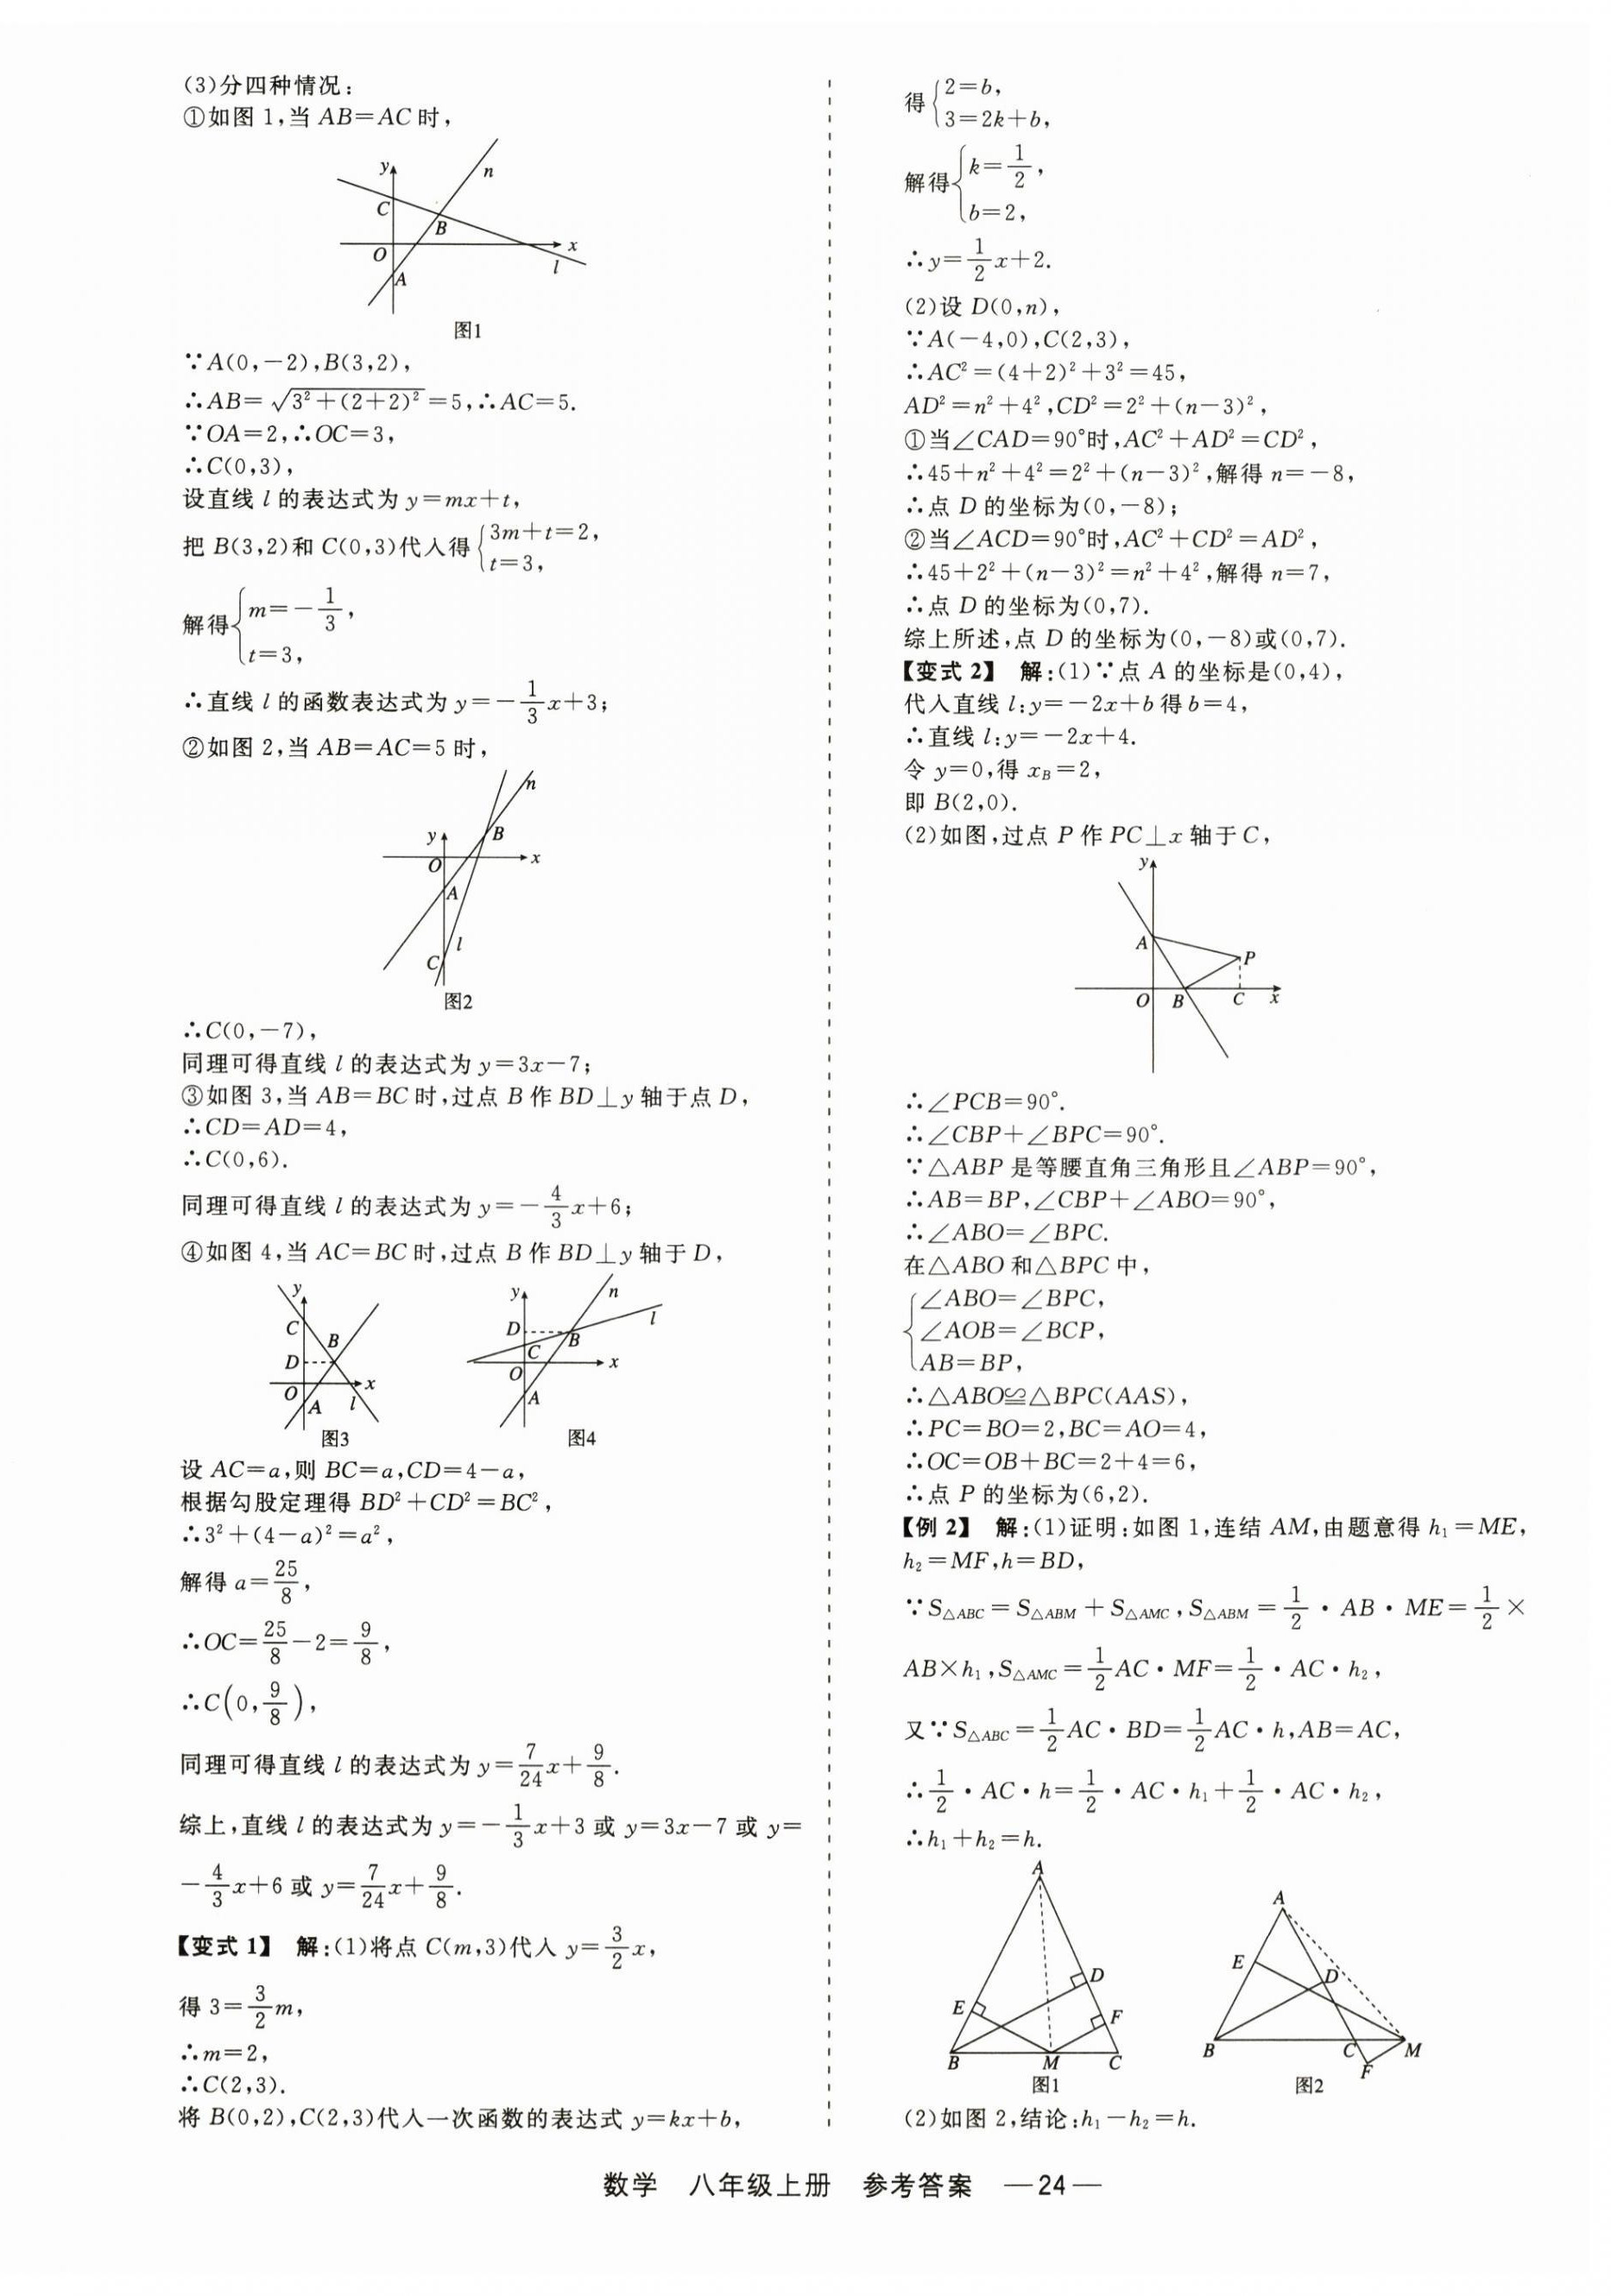 (3)分四种情况:
①如图 1,当 AB=AC 时,
y
n
C
B
O
x
A
l
图1
∵A(0,-2),B(3,2),
∴AB=√(3²+(2+2)²)=5,∴AC=5.
∵OA=2,∴OC=3,
∴C(0,3),
设直线 l 的表达式为 y=mx+t,
把 B(3,2)和 C(0,3)代入得{3m+t=2,
t=3,
解得{m=-1/3,
t=3,
∴直线 l 的函数表达式为 y=-1/3x+3;
②如图 2,当 AB=AC=5 时,
n
y
B
O
x
A
l
C
图2
∴C(0,-7),
同理可得直线 l 的表达式为 y=3x-7;
③如图 3,当 AB=BC 时,过点 B 作 BD⊥y 轴于点 D,
∴CD=AD=4,
∴C(0,6).
同理可得直线 l 的表达式为 y=-4/3x+6;
④如图 4,当 AC=BC 时,过点 B 作 BD⊥y 轴于 D,
y
C
B
D
O
x
A
l
图3
y
n
D
l
B
C
x
O
A
图4
设 AC=a,则 BC=a,CD=4-a,
根据勾股定理得 BD²+CD²=BC²,
∴3²+(4-a)²=a²,
解得 a=25/8,
∴OC=25/8-2=9/8,
∴C(0,9/8),
同理可得直线 l 的表达式为 y=7/24x+9/8.
综上,直线 l 的表达式为 y=-1/3x+3 或 y=3x-7 或 y=
-4/3x+6 或 y=7/24x+9/8.
【变式 1】 解:(1)将点 C(m,3)代入 y=3/2x,
得 3=3/2m,
∴m=2,
∴C(2,3).
将 B(0,2),C(2,3)代入一次函数的表达式 y=kx+b,
得{2=b,
3=2k+b,
解得{k=1/2,
b=2,
∴y=1/2x+2.
(2)设 D(0,n),
∵A(-4,0),C(2,3),
∴AC²=(4+2)²+3²=45,
AD²=n²+4²,CD²=2²+(n-3)²,
①当∠CAD=90°时,AC²+AD²=CD²,
∴45+n²+4²=2²+(n-3)²,解得 n=-8,
∴点 D 的坐标为(0,-8);
②当∠ACD=90°时,AC²+CD²=AD²,
∴45+2²+(n-3)²=n²+4²,解得 n=7,
∴点 D 的坐标为(0,7).
综上所述,点 D 的坐标为(0,-8)或(0,7).
【变式 2】 解:(1)∵点 A 的坐标是(0,4),
代入直线 l:y=-2x+b 得 b=4,
∴直线 l:y=-2x+4.
令 y=0,得 x_B=2,
即 B(2,0).
(2)如图,过点 P 作 PC⊥x 轴于 C,
y
A
P
O
B
C
x
∴∠PCB=90°.
∴∠CBP+∠BPC=90°.
∵△ABP 是等腰直角三角形且∠ABP=90°,
∴AB=BP,∠CBP+∠ABO=90°,
∴∠ABO=∠BPC.
在△ABO 和△BPC 中,
{∠ABO=∠BPC,
∠AOB=∠BCP,
AB=BP,
∴△ABO≌△BPC(AAS),
∴PC=BO=2,BC=AO=4,
∴OC=OB+BC=2+4=6,
∴点 P 的坐标为(6,2).
【例 2】 解:(1)证明:如图 1,连结 AM,由题意得 h₁=ME,
h₂=MF,h=BD,
∵S△ABC=S△ABM+S△AMC,S△ABM=1/2·AB·ME=1/2×
AB×h₁,S△AMC=1/2AC·MF=1/2·AC·h₂,
又∵S△ABC=1/2AC·BD=1/2AC·h,AB=AC,
∴1/2·AC·h=1/2·AC·h₁+1/2·AC·h₂,
∴h₁+h₂=h.
A
D
E
F
B
M
C
图1
A
E
D
B
C
M
F
图2
(2)如图 2,结论:h₁-h₂=h.
数学 八年级上册 参考答案 —24—